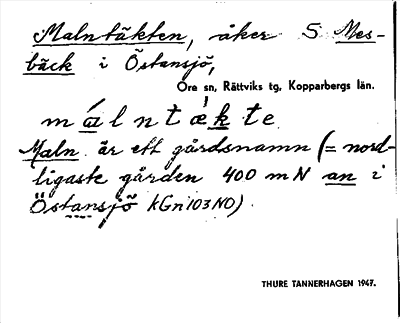 Malntäkten, åker S Mes-
bäck i Östansjö,
Ore sn, Rättviks tg, Kopparbergs län.
málntæ̀kte
Maln är ett gårdsnamn (= nord-
ligaste gården 400 m N an i
Östansjö kGn103NO).
THURE TANNERHAGEN 1947.